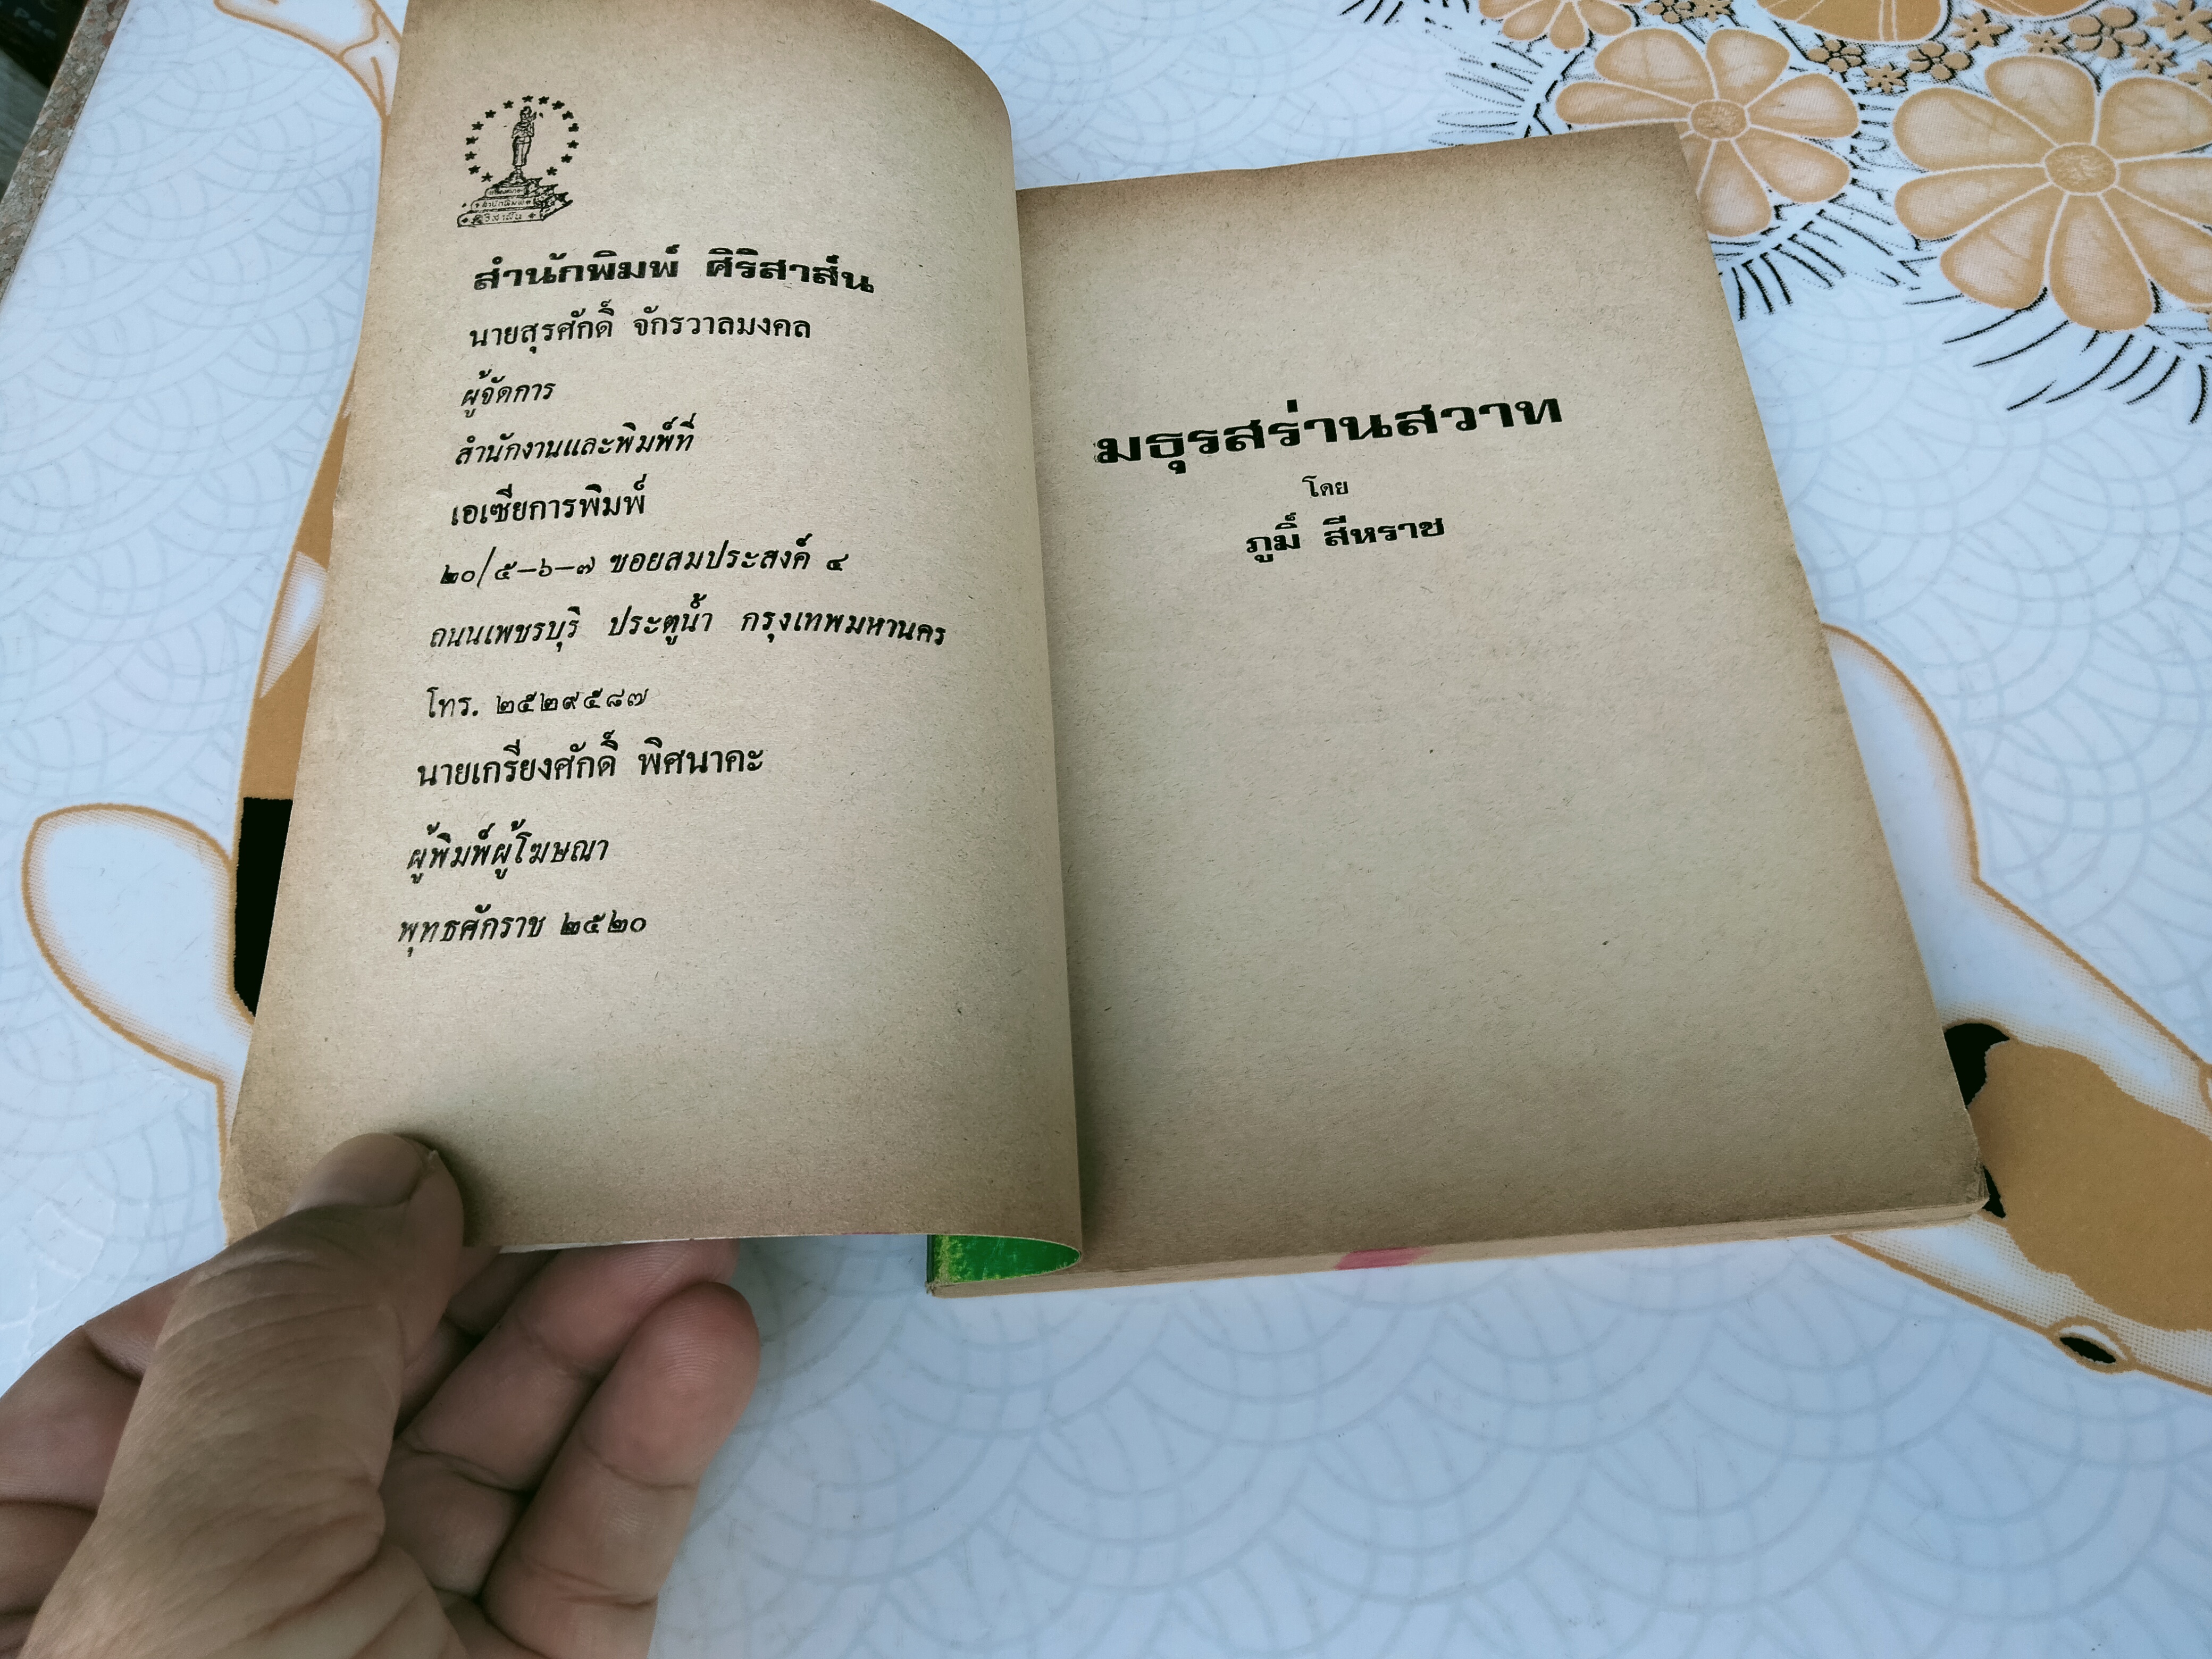 สำนักพิมพ์ ศิริสาส์น
นายสุรศักดิ์ จักรวาลมงคล
ผู้จัดการ
สำนักงานและพิมพ์ที่
เอเซียการพิมพ์
๒๐/๕-๖-๗ ซอยสมประสงค์ ๔
ถนนเพชรบุรี ประตูน้ำ กรุงเทพมหานคร
โทร. ๒๕๒๙๕๘๗
นายเกรียงศักดิ์ พิศนาคะ
ผู้พิมพ์ผู้โฆษณา
พุทธศักราช ๒๕๒๐
มธุรสร่านสวาท
โดย
ภูมิ์ สีหราช